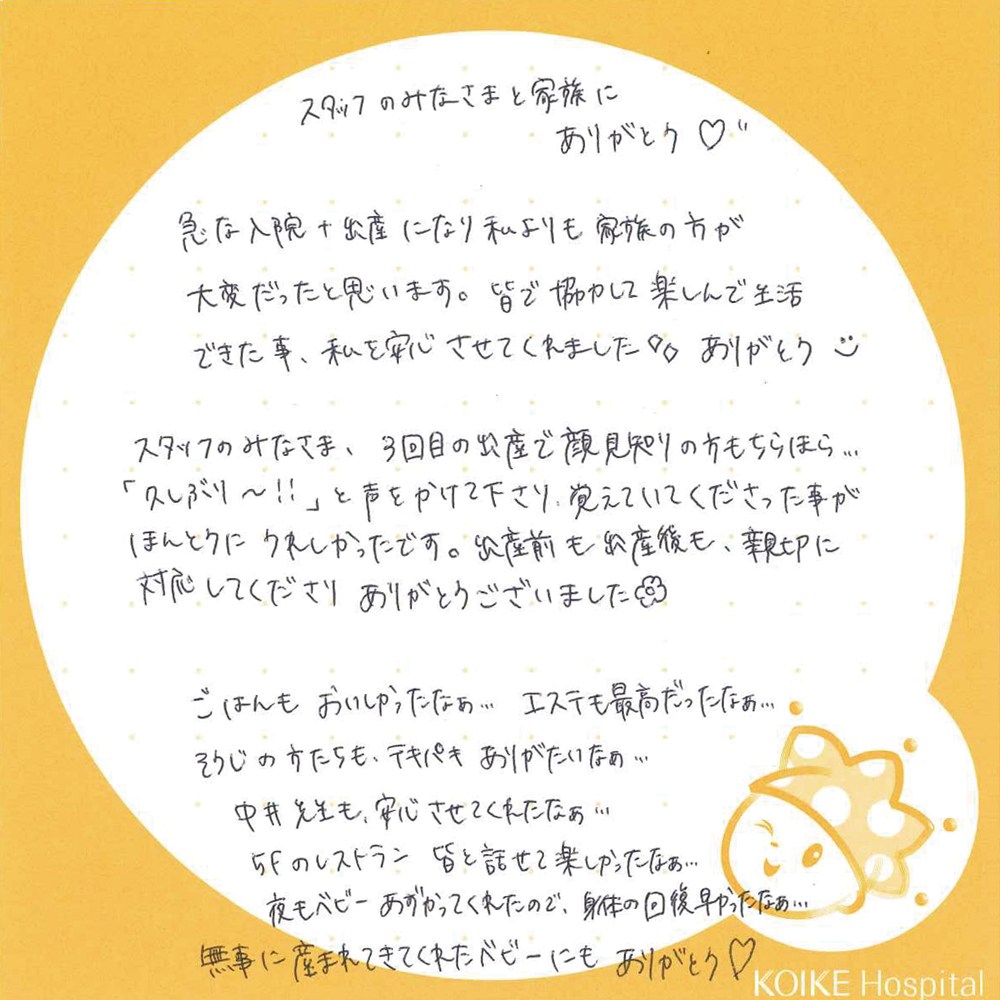 スタッフのみなさまと家族に
ありがとう♡"
急な入院+出産になり私よりも家族の方が
大変だったと思います。皆で協力して楽しんで生活
できた事、私を安心させてくれました ありがとう
スタッフのみなさま、3回目の出産で顔見知りの方もちらほら…
「久しぶり~!!」と声をかけて下さり、覚えていてくださった事が
ほんとうにうれしかったです。出産前も出産後も、親切に
対応してくださりありがとうございました
ごはんもおいしかったなぁ… エステも最高だったなぁ…
そうじの方たちも、テキパキありがたいなぁ…
中井先生も、安心させてくれたなぁ…
5Fのレストラン 皆と話せて楽しかったなぁ…
夜もベビーあずかってくれたので、身体の回復早かったなぁ…
無事に産まれてきてくれたベビーにもありがとう♡
KOIKE Hospital